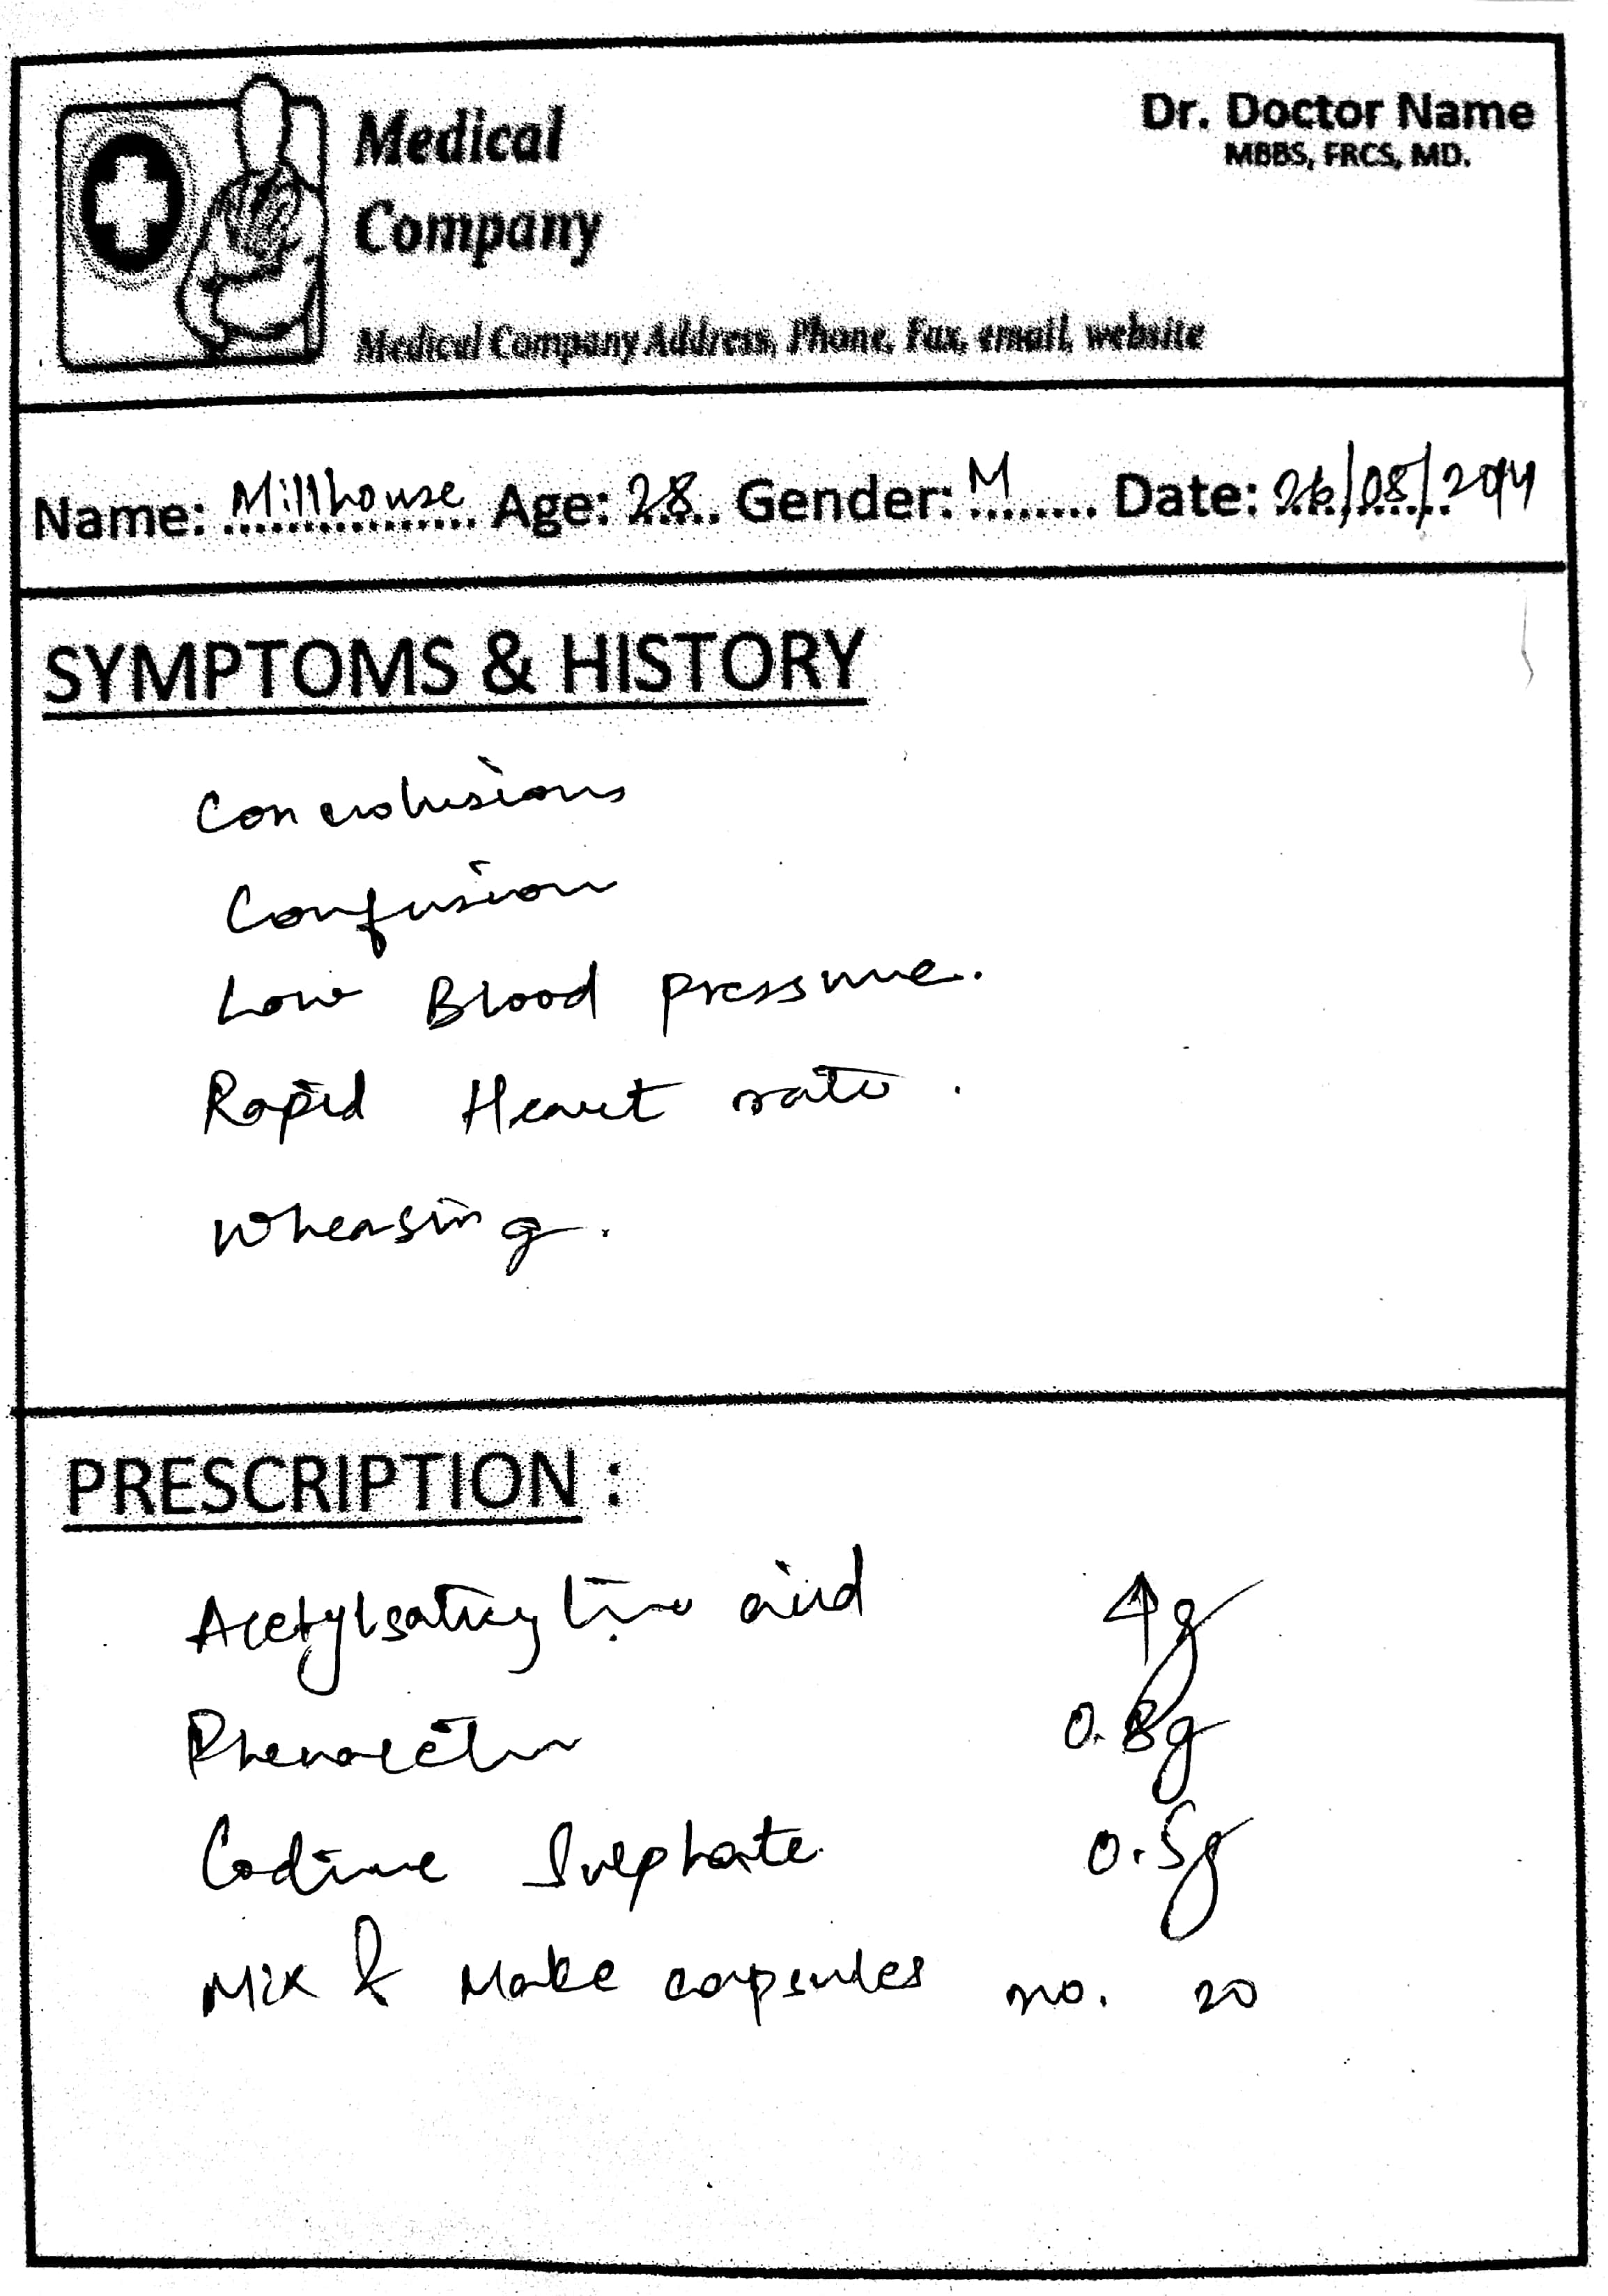 Medical
Company
Dr. Doctor Name
MBBS, FRCS, MD.
Medical Company Address, Phone, Fax, email, website
Name: Millhouse Age: 28 Gender: M Date: 26/08/2014
SYMPTOMS & HISTORY
Confusion
Low Blood pressure.
Rapid Heart rate.
Wheasing.
PRESCRIPTION :
acid g
Phenacetin 0.8g
Codine Sulphate 0.5g
Mix & Make capsules no. 20